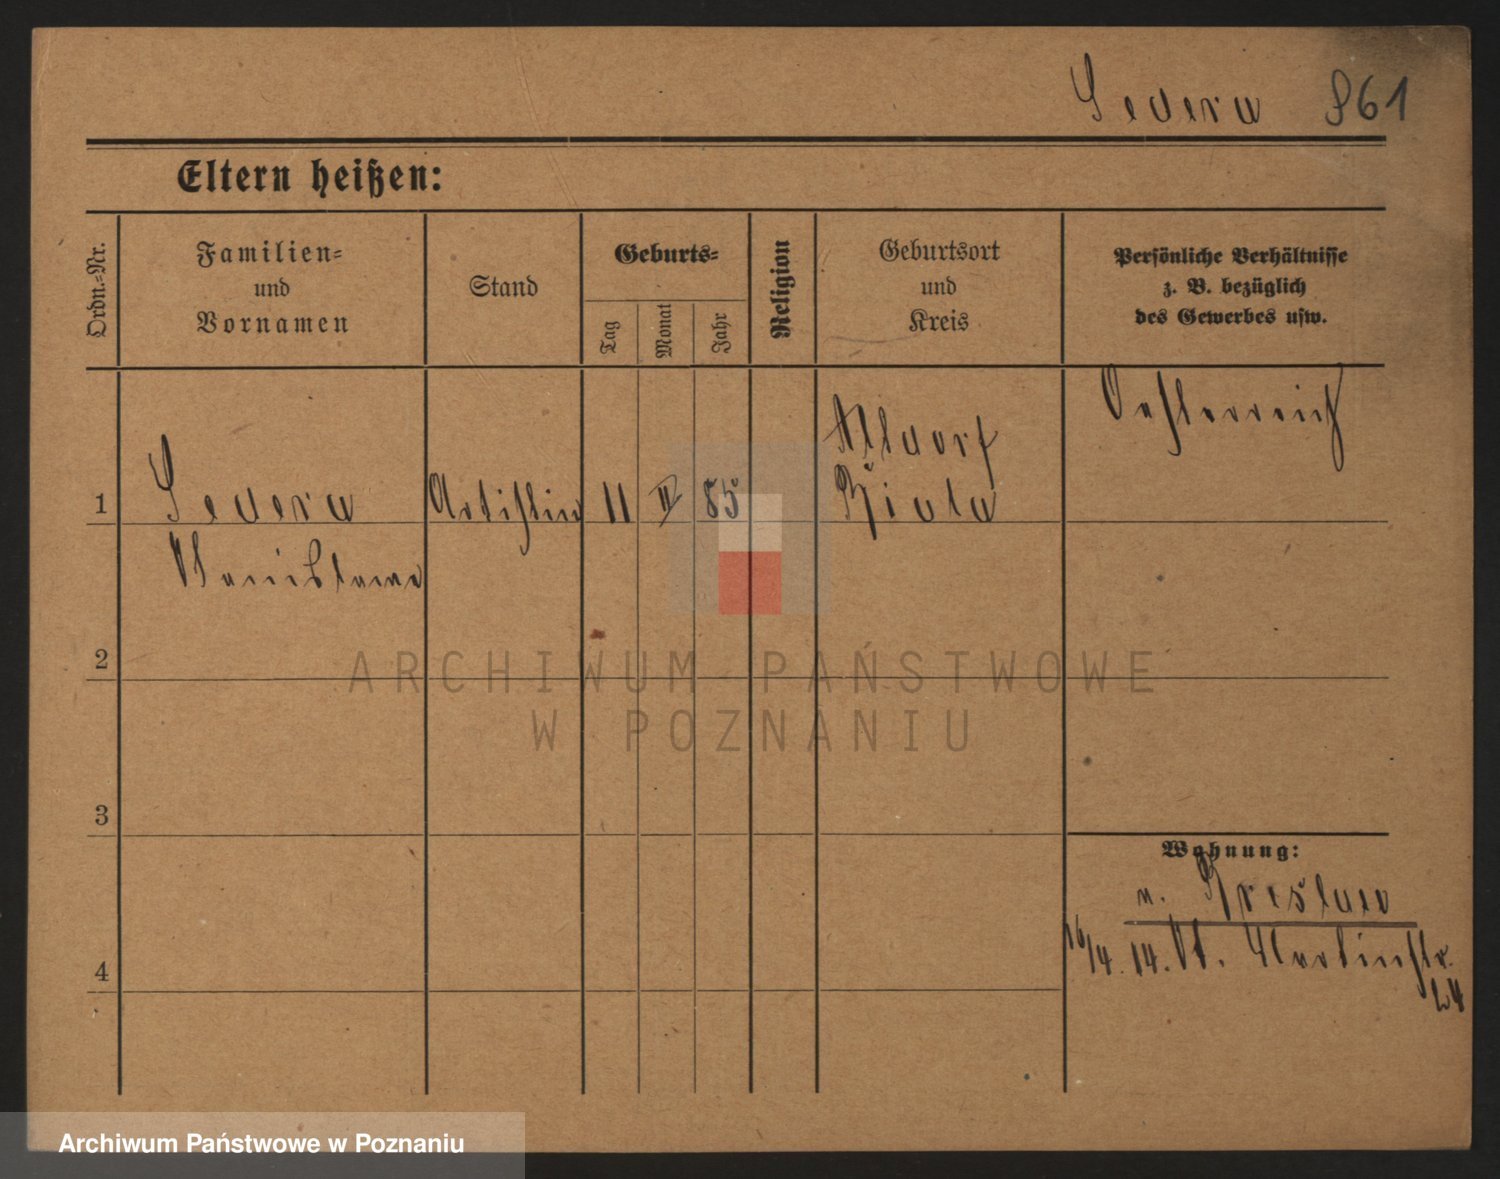 Sedera 861
Eltern heißen:
Ordn.-Nr.
Familien=
und
Vornamen
Stand
Geburts=
Tag
Monat
Jahr
Religion
Geburtsort
und
Kreis
Persönliche Verhältnisse
z. B. bezüglich
des Gewerbes usw.
1
Sedera
Stanislawa
Artistin
11
II
85
Alldorf
Biala
Oesterreich
2
3
4
Wohnung:
n. Breslau
16/4. 14. St. Martinstr.
24
ARCHIWUM PAŃSTWOWE
W POZNANIU
Archiwum Państwowe w Poznaniu